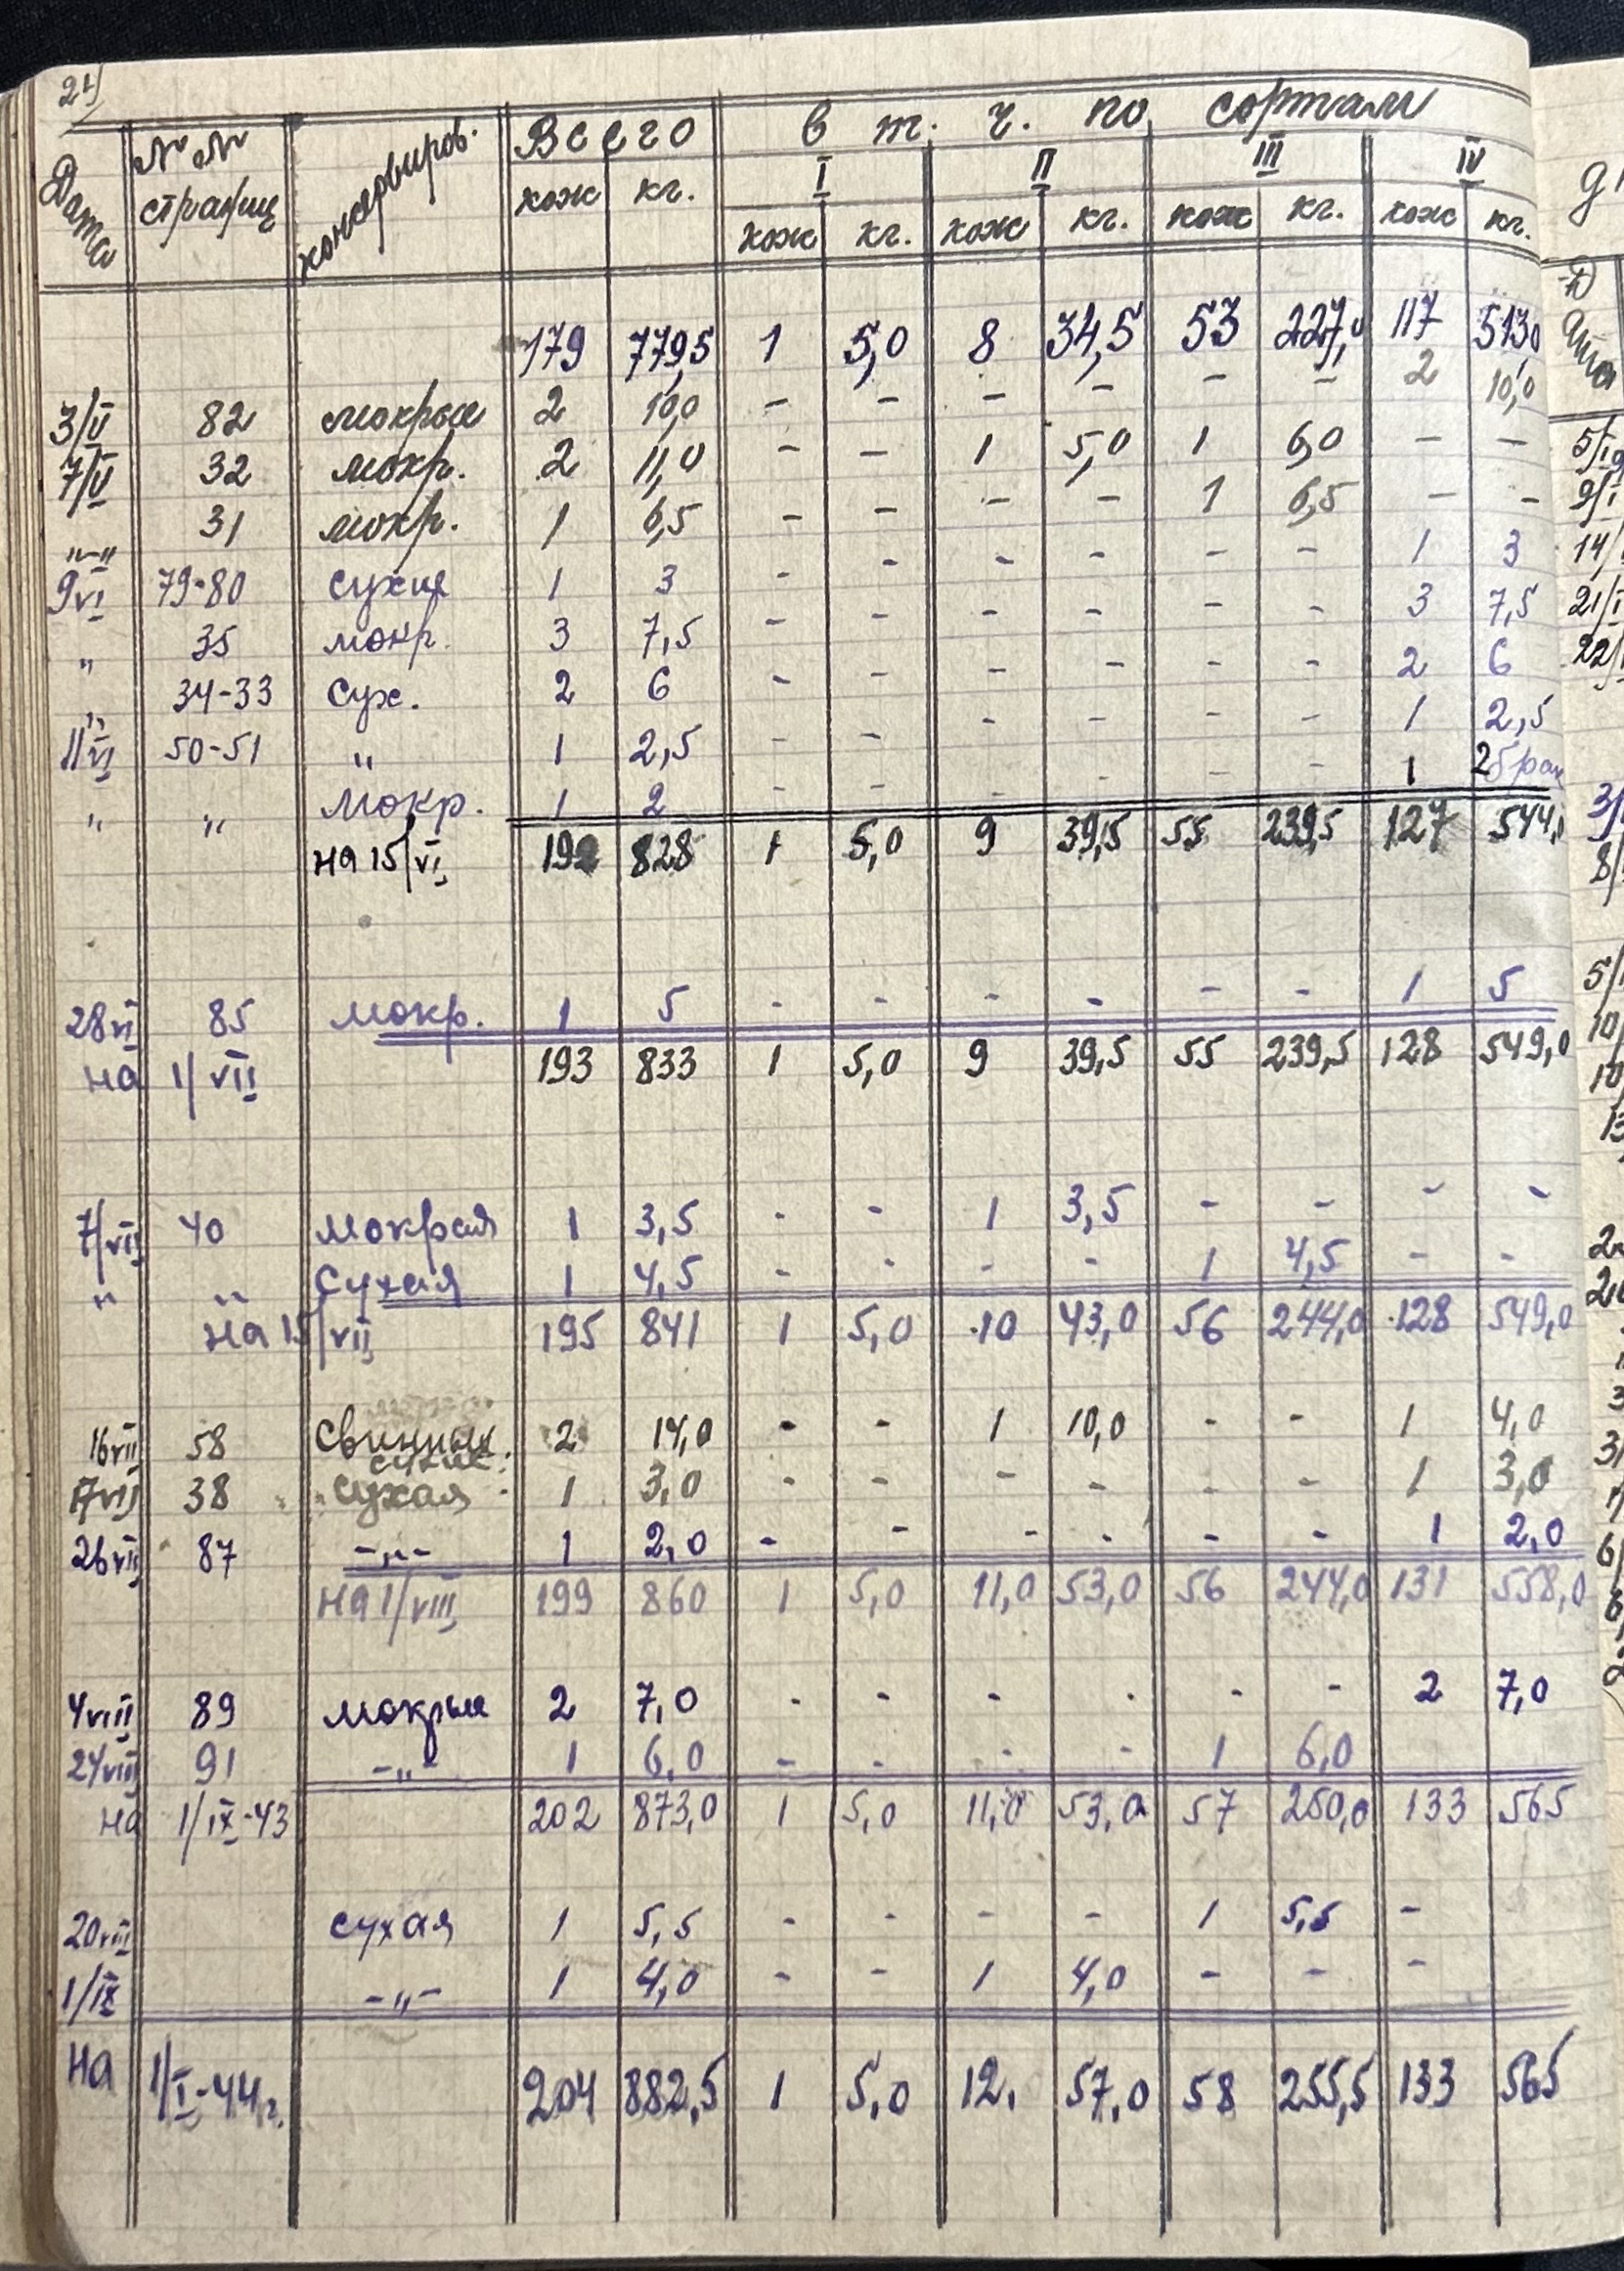 24)
Дата №№ страниц консервиров. Всего в т. ч. по сортам
I II III IV
кож кг. кож кг. кож кг. кож кг. кож кг.
179 779,5 1 5,0 8 34,5 53 227,0 117 513,0
3/V 82 мокрые 2 10,0 - - - - - - 2 10,0
7/V 32 мокр. 2 11,0 - - 1 5,0 1 6,0 - -
"-" 31 мокр. 1 6,5 - - - - 1 6,5 - -
9VI 79-80 сухие 1 3 - - - - - - 1 3
" 35 мокр. 3 7,5 - - - - - - 3 7,5
" 34-33 сух. 2 6 - - - - - - 2 6
11VI 50-51 " 1 2,5 - - - - - - 1 2,5
" " мокр. 1 2 - - - - - - 1 2брак
на 15/VI 192 828 1 5,0 9 39,5 55 239,5 127 544,0
28VI 85 мокр. 1 5 - - - - - - 1 5
на 1/VII 193 833 1 5,0 9 39,5 55 239,5 128 549,0
7/VII 40 мокрая 1 3,5 - - 1 3,5 - - - -
" " сухая 1 4,5 - - - - 1 4,5 - -
на 15/VII 195 841 1 5,0 10 43,0 56 244,0 128 549,0
16VII 58 свинных сухие: 2 14,0 - - 1 10,0 - - 1 4,0
17VII 38 сухая 1 3,0 - - - - - - 1 3,0
26VII 87 -"- 1 2,0 - - - - - - 1 2,0
на 1/VIII 199 860 1 5,0 11,0 53,0 56 244,0 131 558,0
4VIII 89 мокрые 2 7,0 - - - - - - 2 7,0
24VIII 91 -"- 1 6,0 - - - - 1 6,0
на 1/IX-43 202 873,0 1 5,0 11,0 53,0 57 250,0 133 565
20VIII сухая 1 5,5 - - - - 1 5,5 -
1/IX -"- 1 4,0 - - 1 4,0 - - -
на 1/I-44г. 204 882,5 1 5,0 12. 57,0 58 255,5 133 565